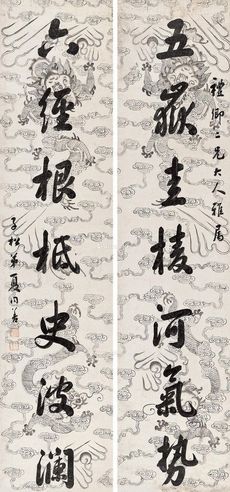 禮卿二兄大人雅屬
五嶽圭棱河氣勢
六經根柢史波瀾
子松弟夏同善